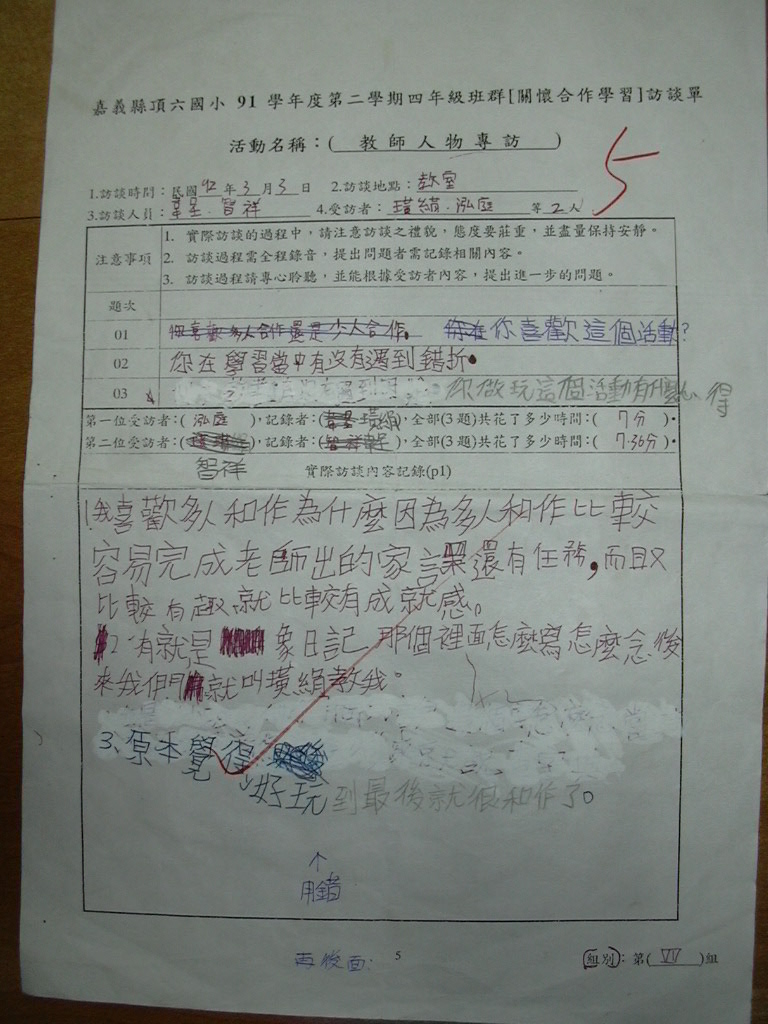 嘉義縣頂六國小 91 學年度第二學期四年級班群[關懷合作學習]訪談單
活動名稱：( 教師人物專訪 )
5
1.訪談時間：民國 92 年 3 月 3 日 2.訪談地點：教室
3.訪談人員： 智祥 4.受訪者： 泓庭 等 2 人
注意事項
1. 實際訪談的過程中，請注意訪談之禮貌，態度要莊重，並盡量保持安靜。
2. 訪談過程需全程錄音，提出問題者需記錄相關內容。
3. 訪談過程請專心聆聽，並能根據受訪者內容，提出進一步的問題。
題次
01 你喜歡多人合作還是少人合作。 你在你喜歡這個活動?
02 你在學習當中有沒有遇到錯折。
03 你做玩這個活動有什麼心得
第一位受訪者：( 泓庭 )，記錄者：( )，全部(3 題)共花了多少時間：( 7分 )。
第二位受訪者：( )，記錄者：( )，全部(3 題)共花了多少時間：( 7.36分 )。
智祥 實際訪談內容記錄(p1)
1我喜歡多人和作為什麼因為多人和作比較
容易完成老師出的家課還有任務，而且又
比較有趣就比較有成就感。
2有就是 象日記那個裡面怎麼寫怎麼念後
來我們 就叫 教我。
3、原本覺得
好玩到最後就很和作了。
↑
用錯
再後面：
5
組別：第( VI )組